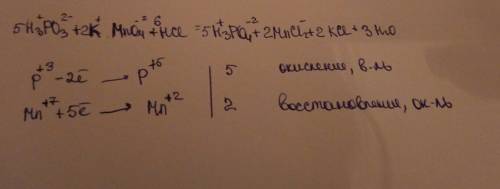 5H₃⁺PO₃²⁻+2K⁺ MnO₄⁻²+⁶HCl =5H₃⁺PO₄⁻²+2MnCl₂+2KCl+3H₂O
P⁺³-2ē → P⁺⁵ | 5 окисление, в-ль
Mn⁺⁷+5ē → Mn⁺² | 2 восстановление, ок-ль